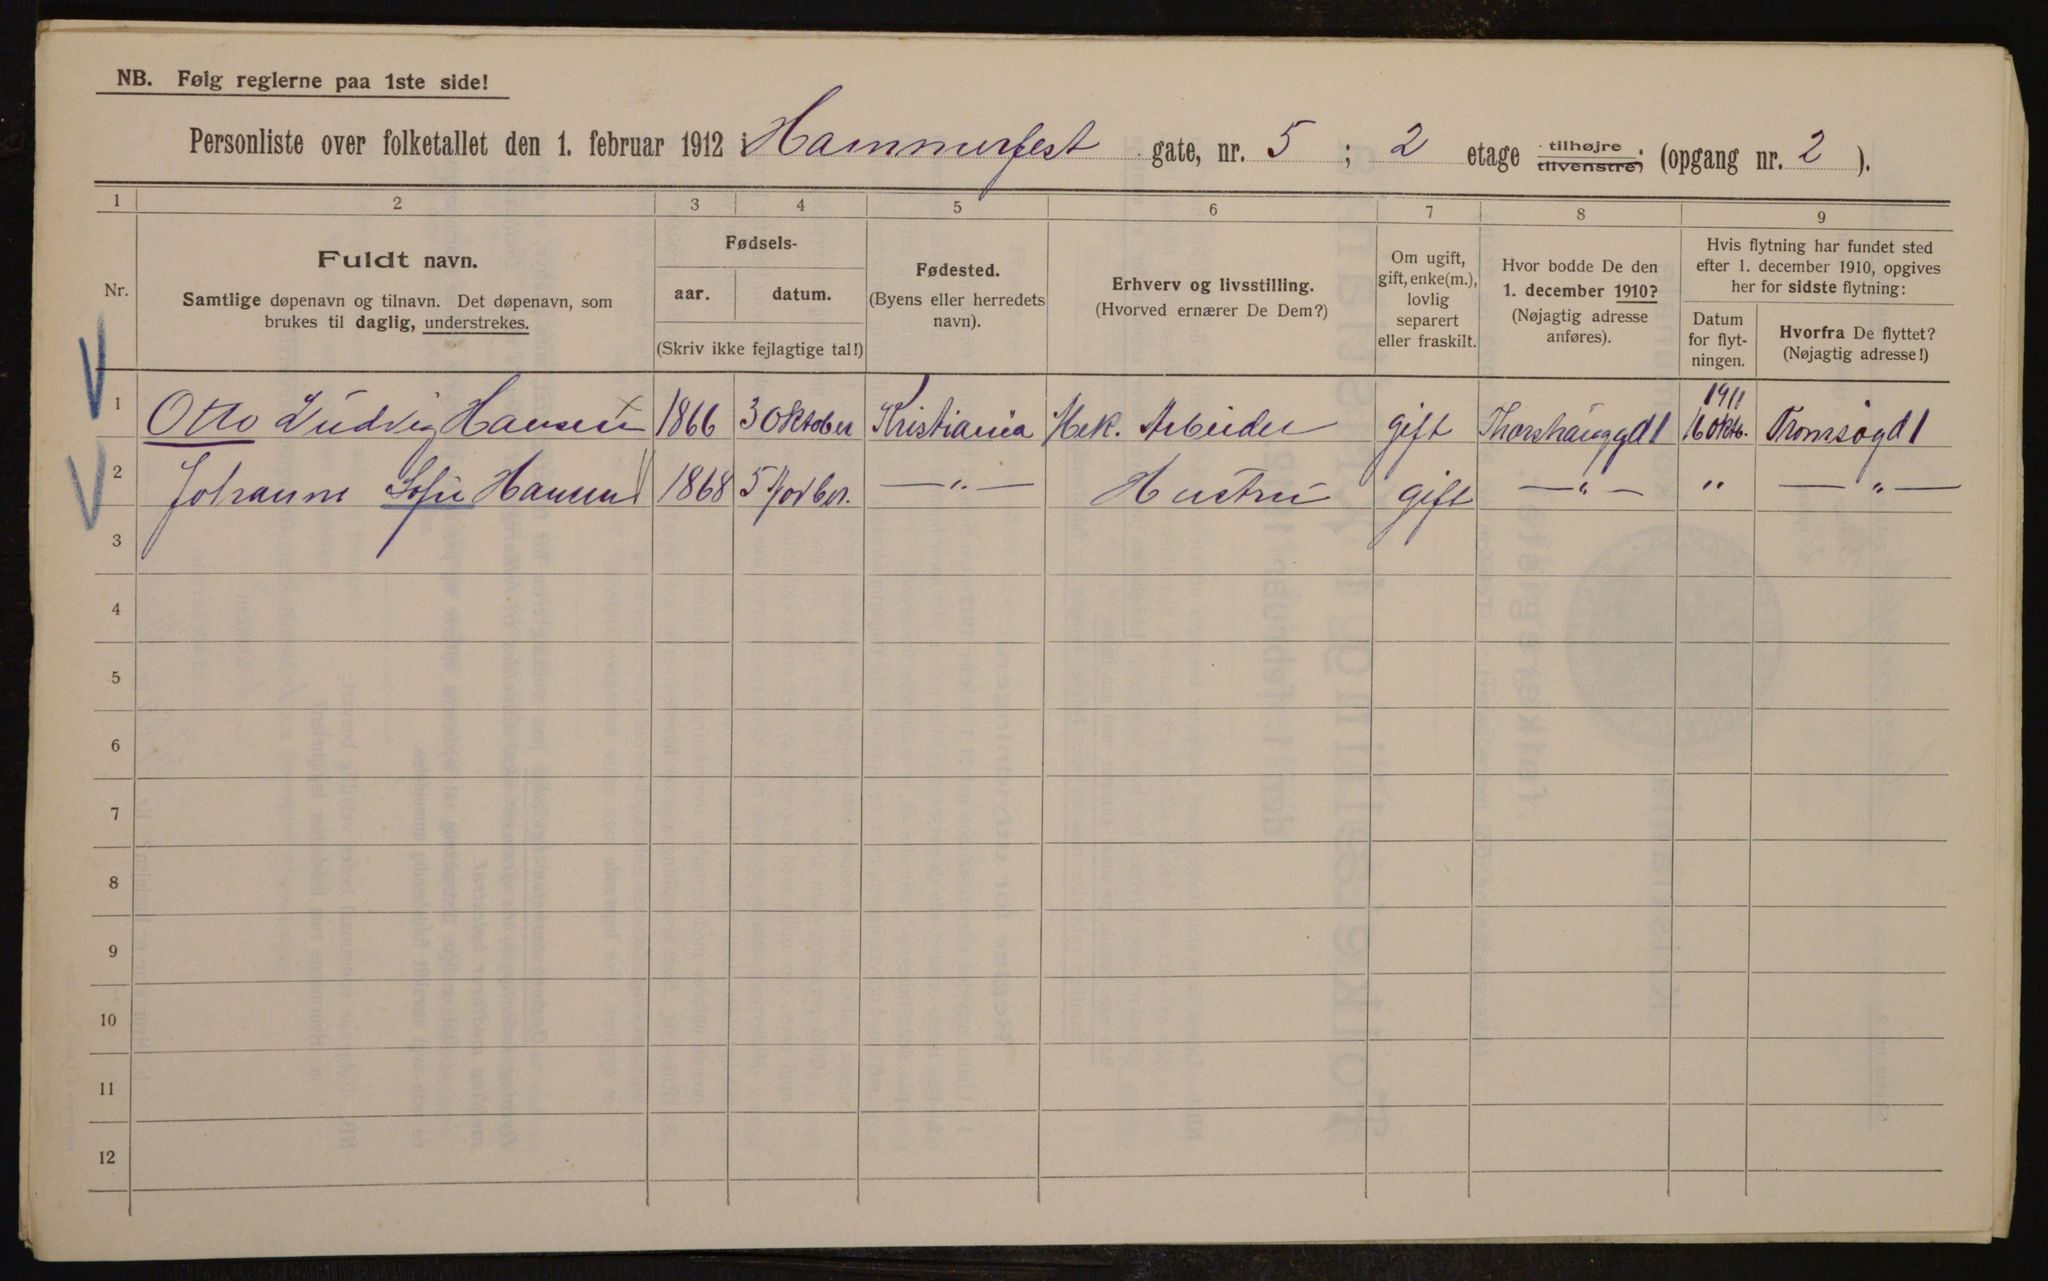 NB. Følg reglerne paa 1ste side!
Personliste over folketallet den 1. februar 1912 i Hammerfest gate, nr. 5 ; 2 etage tilhøjre tilvenstre; (opgang nr. 2 ).
1 2 3 4 5 6 7 8 9
Nr.
Fuldt navn.
Samtlige døpenavn og tilnavn. Det døpenavn, som
brukes til daglig, understrekes.
Fødsels-
aar. datum.
(Skriv ikke fejlagtige tal!)
Fødested.
(Byens eller herredets
navn).
Erhverv og livsstilling.
(Hvorved ernærer De Dem?)
Om ugift,
gift, enke(m.),
lovlig
separert
eller fraskilt.
Hvor bodde De den
1. december 1910?
(Nøjagtig adresse
anføres).
Hvis flytning har fundet sted
efter 1. december 1910, opgives
her for sidste flytning:
Datum
for flyt-
ningen.
Hvorfra De flyttet?
(Nøjagtig adresse!)
1911
1 Otto Ludvig Hansen 1866 3 Oktober Kristiania Mek. Arbeider gift 16 oktb. Tromsøgd 1
2 Johanne Sofie Hansen 1868 5 — " — Hustru gift — " — " — " —
3
4
5
6
7
8
9
10
11
12